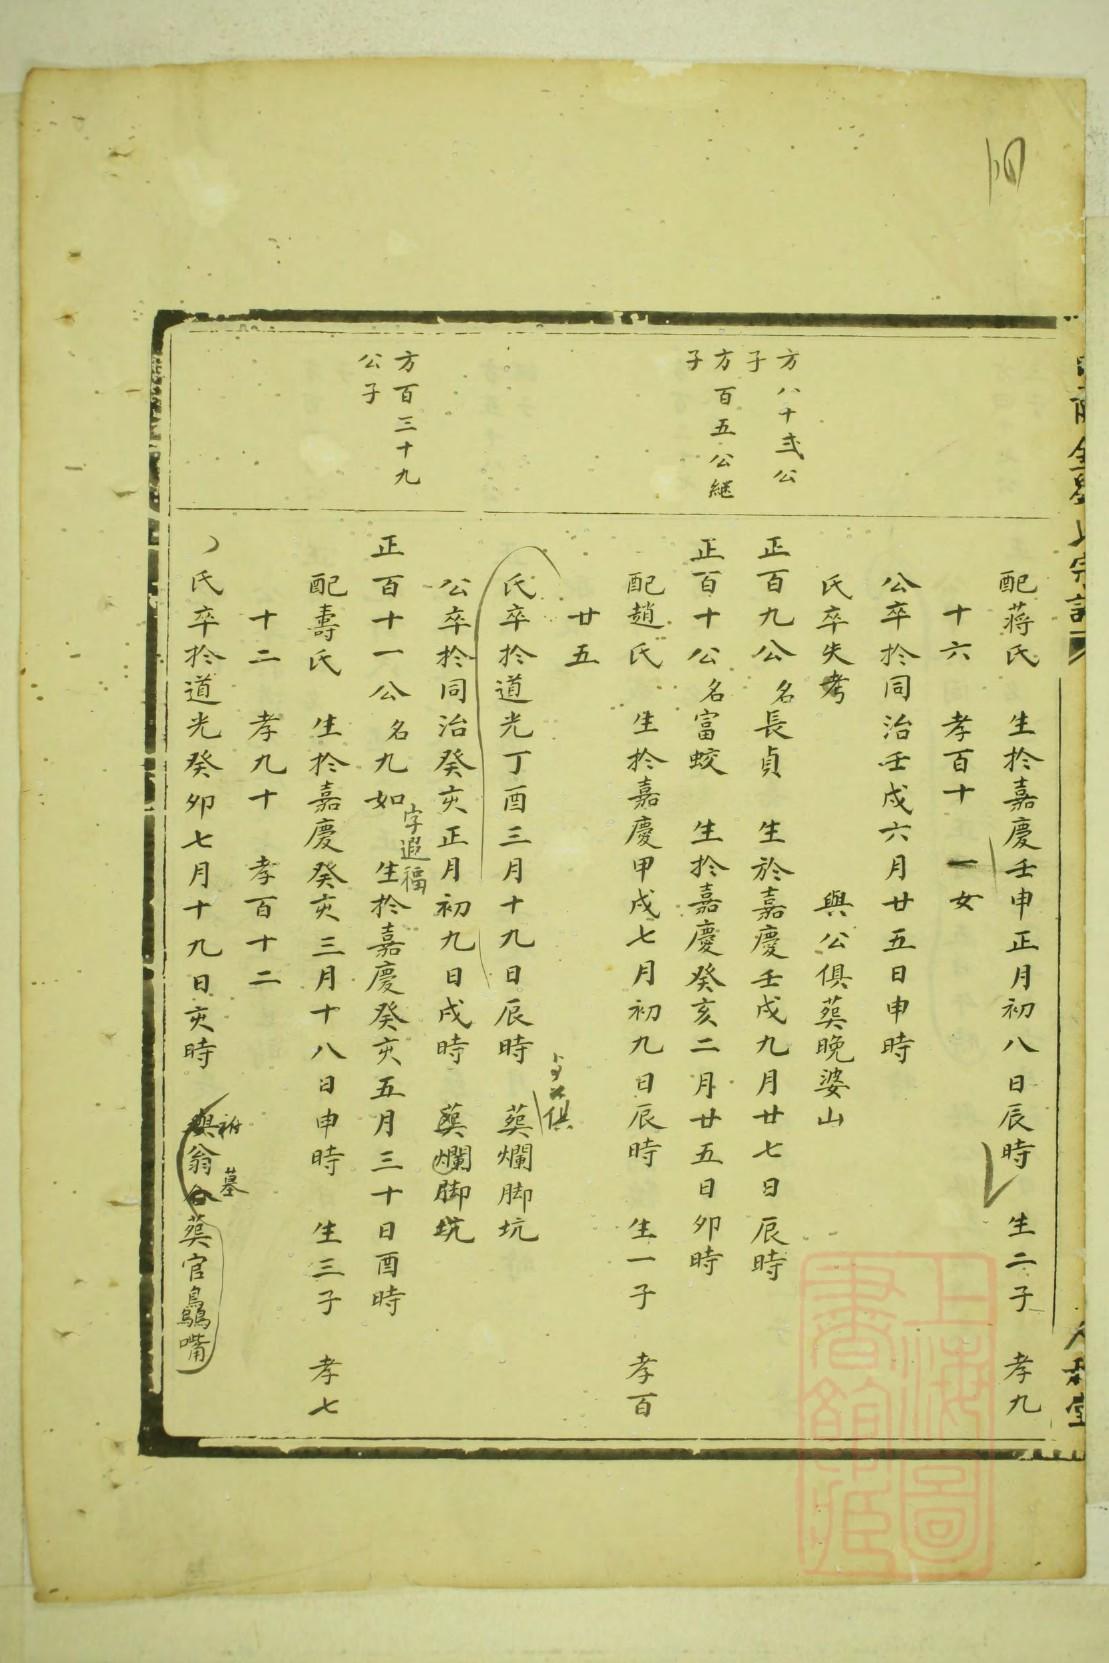 配蔣氏 生於嘉慶壬申正月初八日辰時 生二子 孝九
十六 孝百十 一女
公卒於同治壬戌六月廿五日申時
氏卒失考 與公俱葬晚婆山
方八十弍公子
正百九公名長貞 生於嘉慶壬戌九月廿七日辰時
方百五公繼子
正百十公名富蛟 生於嘉慶癸亥二月廿五日卯時
配趙氏 生於嘉慶甲戌七月初九日辰時 生一子 孝百
廿五
俱
氏卒於道光丁酉三月十九日辰時 葬爛脚坑
公卒於同治癸亥正月初九日戌時 葬爛脚坑
方百三十九公子
正百十一公名九如 生於嘉慶癸亥五月三十日酉時
字遐福
配壽氏 生於嘉慶癸亥三月十八日申時 生三子 孝七
十二 孝九十 孝百十二
祔 墓
氏卒於道光癸卯七月十九日亥時 與翁合葬官鷍嘴
上海圖書館藏